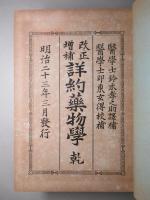 醫學士鈴木孝之助譯補
醫學士印東玄得校補
改正
增補
詳約藥物學 乾
明治二十三年三月發行